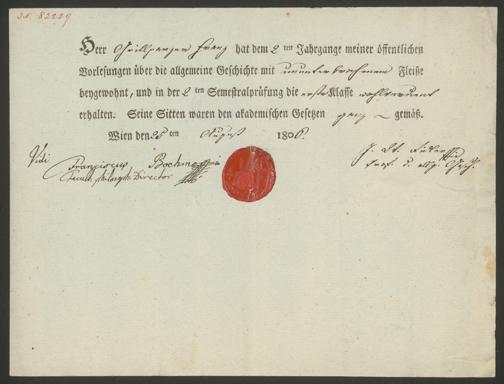 I.N. 82229
Herr Grillparzer Franz hat dem 2 ten Jahrgange meiner öffentlichen
Vorlesungen über die allgemeine Geschichte mit ununterbrochenem Fleiße
beygewohnt, und in der 2 ten Semestralprüfung die erste Klasse wohlverdient
erhalten. Seine Sitten waren den akademischen Gesetzen ganz gemäß.
Wien den 25 ten August 1806.
Vidi
Franciscus Boehme
Director
Prof. d. allg. Gesch.